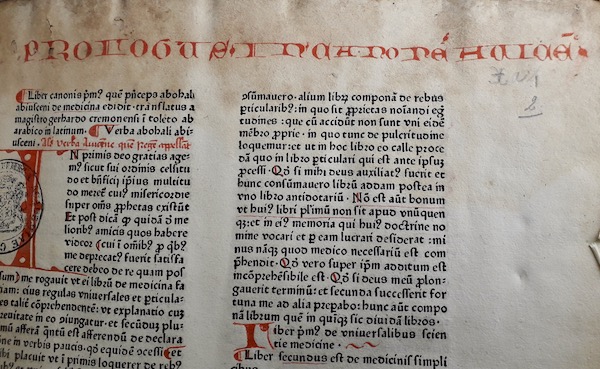 PROLOGUS · IN CANONE AUICENE
Liber canonis p̄mꝰ quē p̄nceps abohali
abiusceni de medicina edidit · trãnslatus a
magistro gerhardo cremonensi ī toleto ab
arabico in latinum. Uerba abohali abi⸗
usceni.
N primis deo gratias age⸗
mꝰ sicut sui ordinis celsitu
do et bñficij ip̄ius multitu
do meret̄ cuiꝰ misericordie
super om̄s ꝓphetas existūt
Et post dicā ꝙ quidā ō me
lionbꝰ amicis quos habere
video: cui ī om̄ibꝰ ꝓ ꝗbꝰ
me deprecatꝰ fuerit satisfa
cere debeo de re quam pos
sum) me rogauit vt ei librū de medicina fa
am: cuius regulas vniuersales et ꝑticula⸗
es talit̄ cōprehendentē: vt explanatio cuȝ
reuitate in eo ꝯiungatur · et secūduȝ plu⸗
mū afferā qntū est afferendū de declara
ne in verbis paucis. qd̄ equidē ꝯcessi et
bi placuit vt ī primis loquerer de rebꝰ
ꝯsūmauero · alium librȝ componā de rebus
ꝑticularibꝰ: in quo sit ꝓprietas noīandi eg̃
tudines: que cū accidūt non sunt vni eidē
mēbro ꝓprie · in quo tunc de pulcritudine
loquemur: et ut in hoc libro eo calle proce
dā quo in libro ꝑticulari qui est ante ipsuȝ
ꝓcessi · Qd̄ si mihi deus auxiliatꝰ fuerit et
hunc consūmauero librū addam postea in
vno libro antidotariū · Nō est aūt bonum
vt huiꝰ libri pl̄imū non sit apud vnūquen
qȝ: et in eiꝰ memoria qui huiꝰ doctrine no
mine vocari et ꝑ eam lucrari desiderat: mi
nus nāqȝ quod medico necessariū est com
p̄hendit · Qd̄ vero super ip̄m additum est
incōprehēsibile est · Qd̄ si deus meū ꝓlon⸗
gauerit terminū: et secunda successerit for
tuna me ad alia prepabo: hunc aūt compo
nā librum quē in quīqȝ sic diuidā libros ·
Liber p̄mꝰ de vniuersalibus scien
tie medicine ·
Liber secundus est de medicinis simpli
cibus